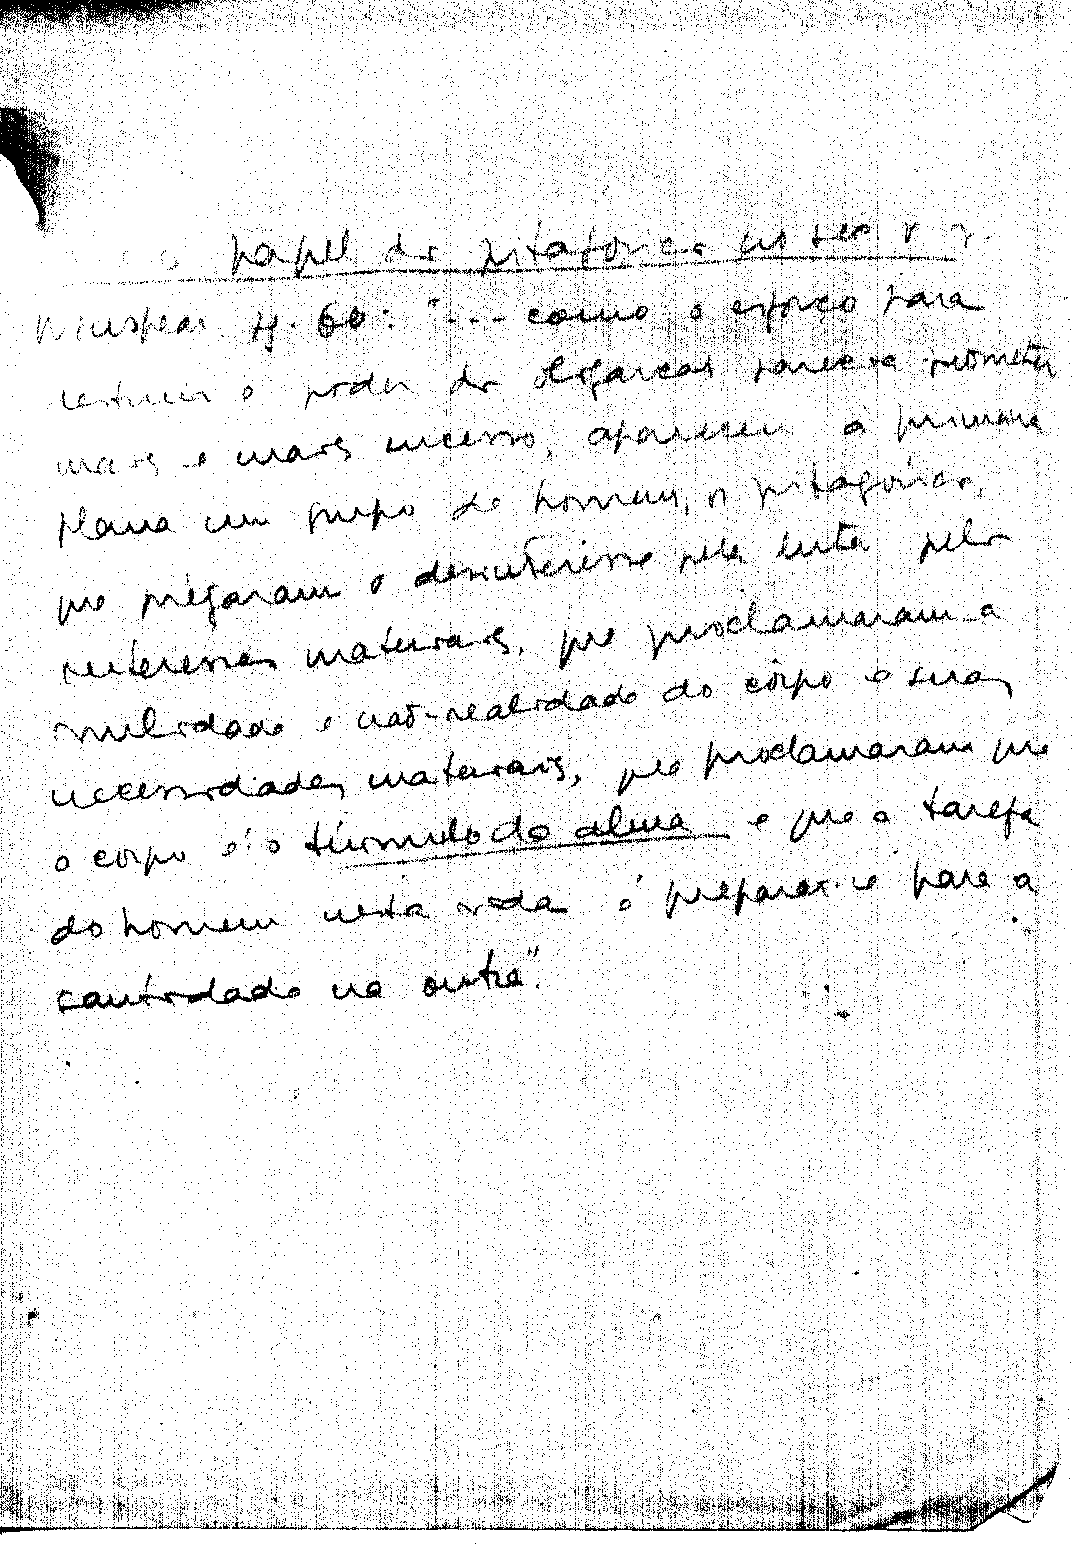 papel dos pitagóricos
Winspear pg. 60: "... como o esforço para
restringir o poder dos oligarcas parecesse prometer
mais e mais sucesso, apareceu a primeiro
plano um grupo de homens, os pitagóricos,
que pregaram o desinteresse pela luta pelos
interesses materiais, que proclamaram a
nulidade e não-realidade do corpo e suas
necessidades materiais, que proclamaram que
o corpo é o túmulo do alma e que a tarefa
do homem nesta vida é preparar-se para a
santidade na outra".